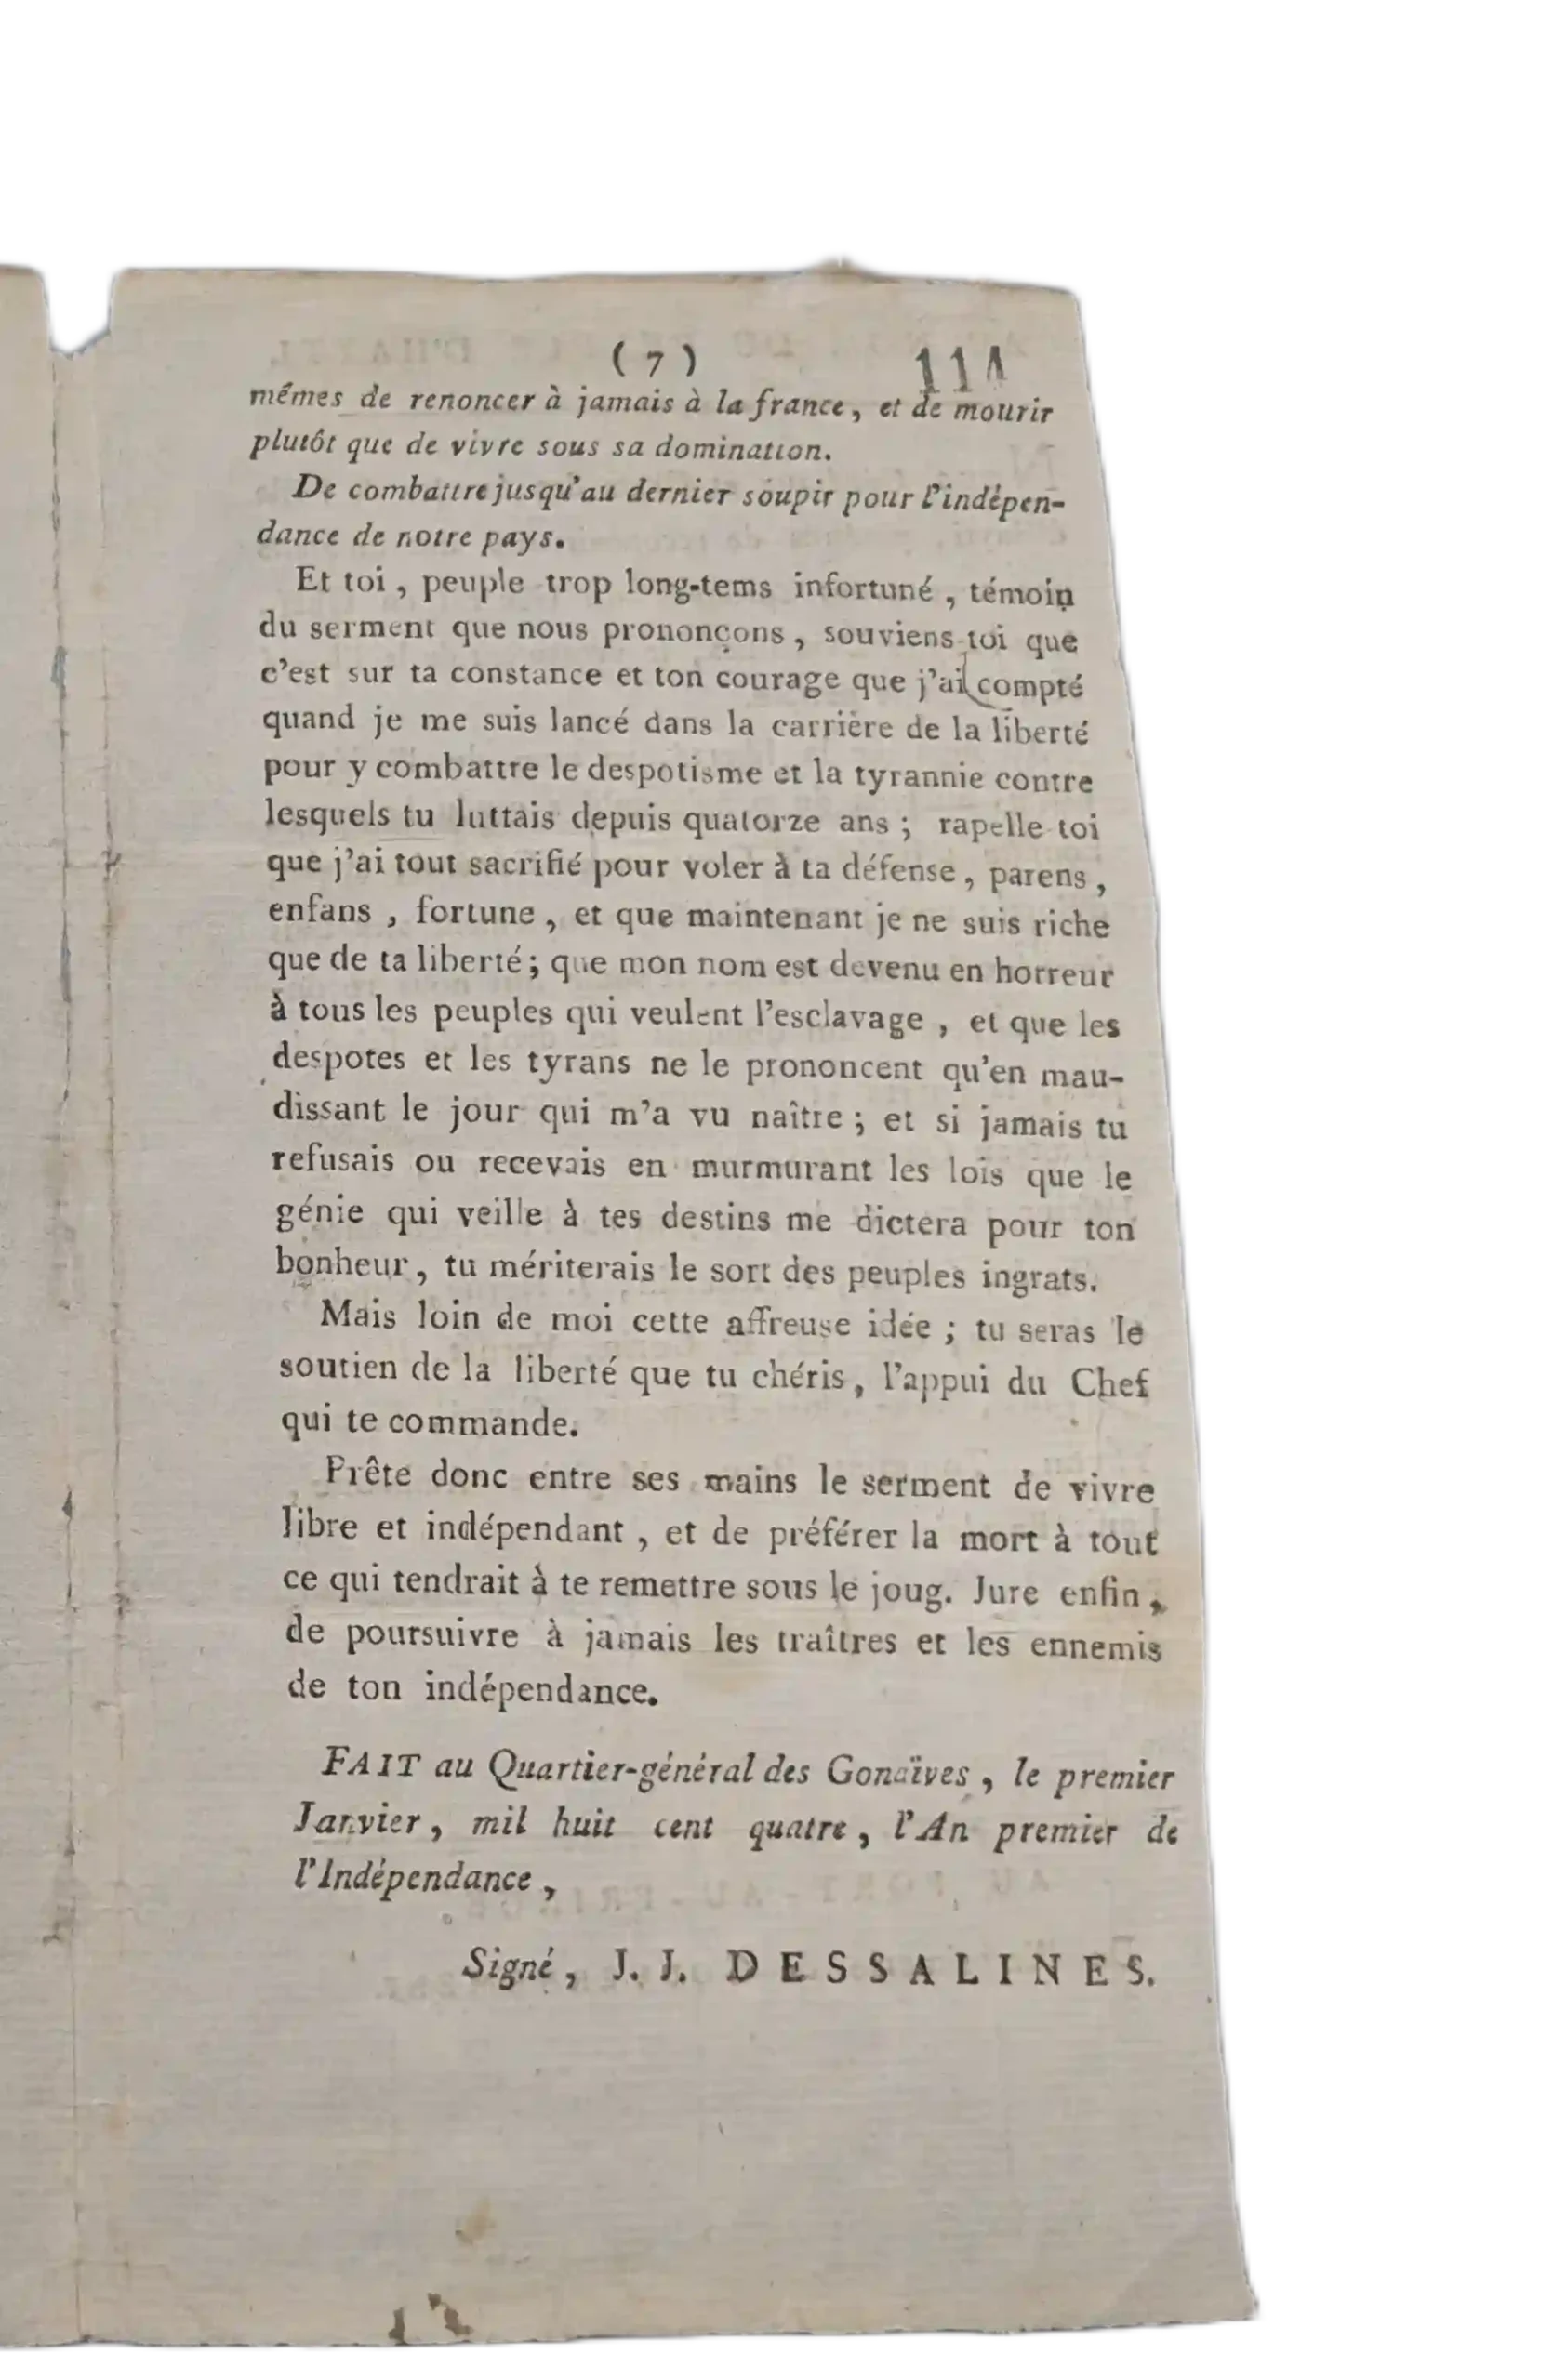 ( 7 ) 114
mêmes de renoncer à jamais à la france, et de mourir
plutôt que de vivre sous sa domination.
De combattre jusqu'au dernier soupir pour l'indépen-
dance de notre pays.
Et toi, peuple trop long-tems infortuné, témoin
du serment que nous prononçons, souviens toi que
c'est sur ta constance et ton courage que j'ai compté
quand je me suis lancé dans la carrière de la liberté
pour y combattre le despotisme et la tyrannie contre
lesquels tu luttais depuis quatorze ans ; rapelle toi
que j'ai tout sacrifié pour voler à ta défense, parens,
enfans, fortune, et que maintenant je ne suis riche
que de ta liberté; que mon nom est devenu en horreur
à tous les peuples qui veulent l'esclavage, et que les
despotes et les tyrans ne le prononcent qu'en mau-
dissant le jour qui m'a vu naître ; et si jamais tu
refusais ou recevais en murmurant les lois que le
génie qui veille à tes destins me dictera pour ton
bonheur, tu mériterais le sort des peuples ingrats.
Mais loin de moi cette affreuse idée ; tu seras le
soutien de la liberté que tu chéris, l'appui du Chef
qui te commande.
Prête donc entre ses mains le serment de vivre
libre et indépendant, et de préférer la mort à tout
ce qui tendrait à te remettre sous le joug. Jure enfin,
de poursuivre à jamais les traîtres et les ennemis
de ton indépendance.
FAIT au Quartier-général des Gonaïves, le premier
Janvier, mil huit cent quatre, l'An premier de
l'Indépendance,
Signé, J. J. DESSALINES.